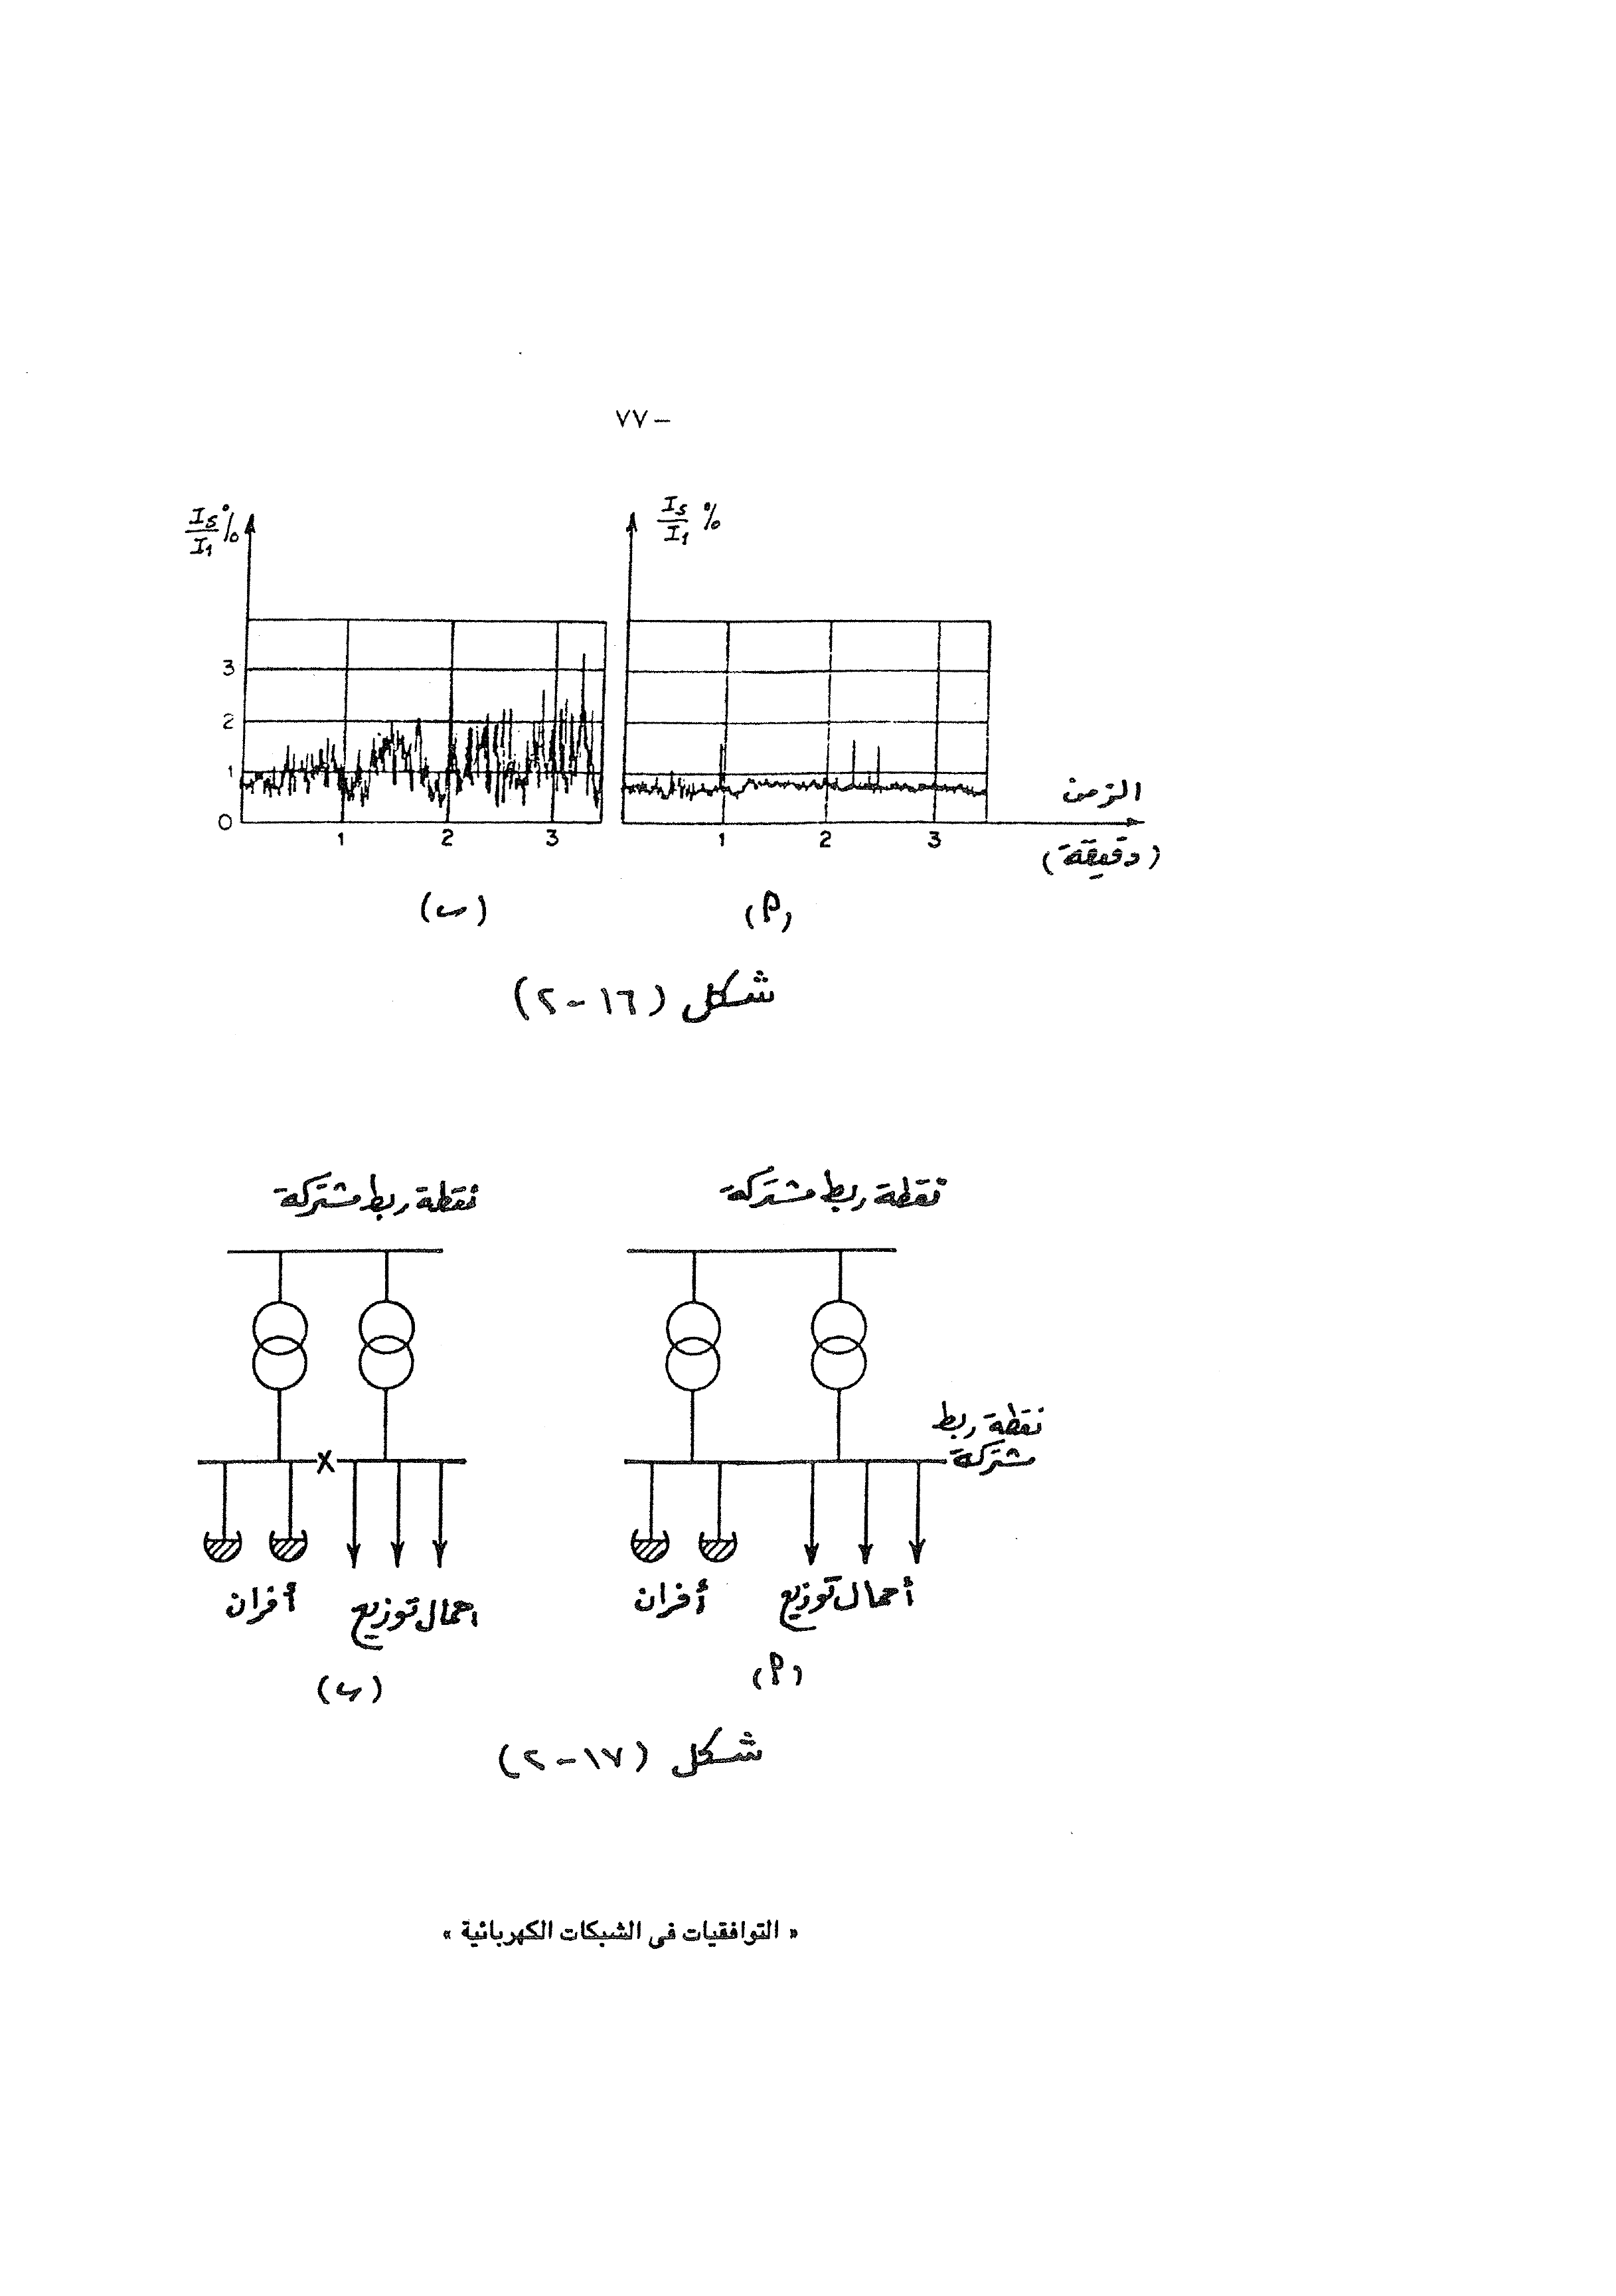 ٧٧ –
Is/I1 %
Is/I1 %
3
2
1
0
1 2 3
1 2 3
الزمن
(دقيقة)
(ب)
(أ)
شكل (١٦-٢)
نقطة ربط مشتركة
نقطة ربط مشتركة
نقطة ربط
مشتركة
X
أفران
احمال توزيع
أفران
أحمال توزيع
(ب)
(أ)
شكل (١٧-٢)
« التوافقيات فى الشبكات الكهربائية »